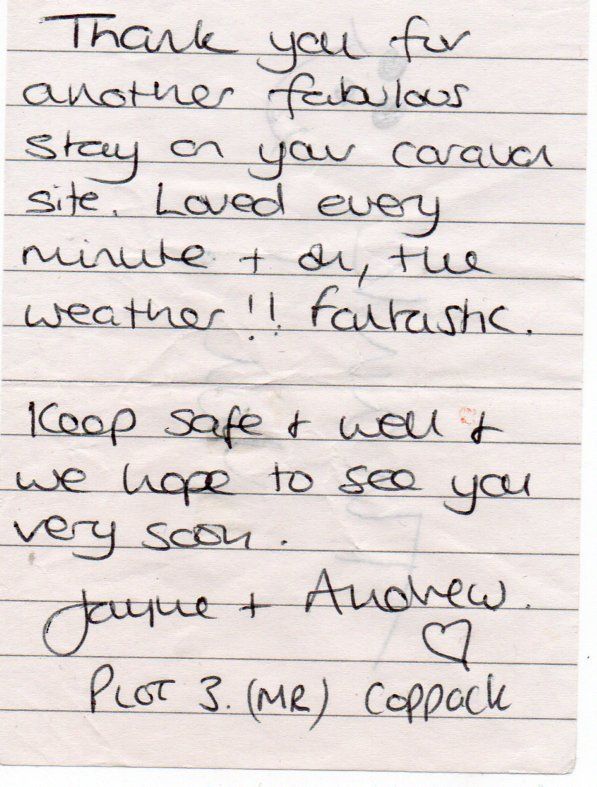 Thank you for
another fabulous
stay on your caravan
site. Loved every
minute + oh, the
weather!! Fantastic.
Keep safe + well +
we hope to see you
very soon.
Jayne + Andrew.
PLOT 3. (MR) Coppack